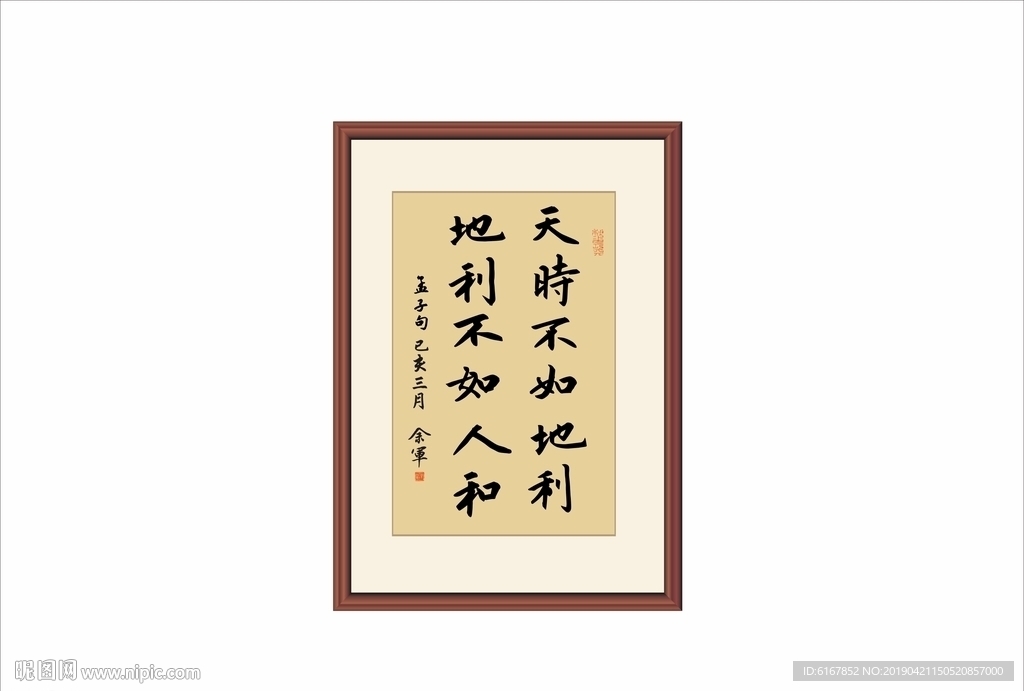 天時不如地利
地利不如人和
孟子句 己亥三月 余軍
昵图网 www.nipic.com
ID:6167852 NO:20190421150520857000